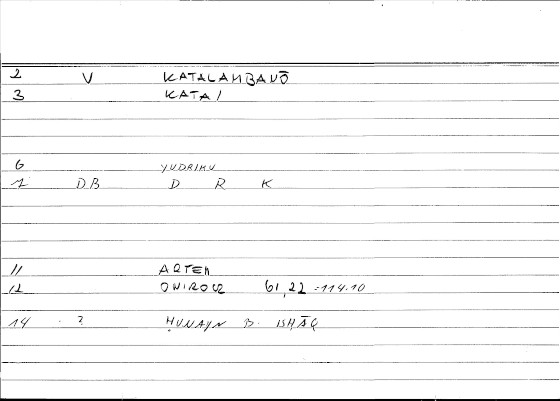 2 V KATALAMBANŌ
3 KATA1
6 YUDRIKU
7 DB D R K
11 ARTEM
12 ONIROCR 61,22 =114.10
14 ? ḤUNAYN B. ISḤĀQ